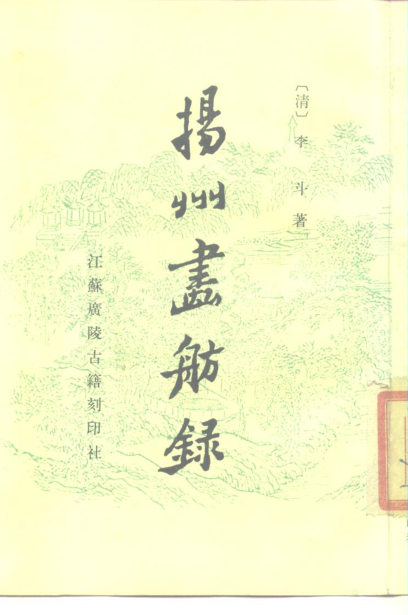 〔清〕李斗著
揚州畫舫録
江蘇廣陵古籍刻印社